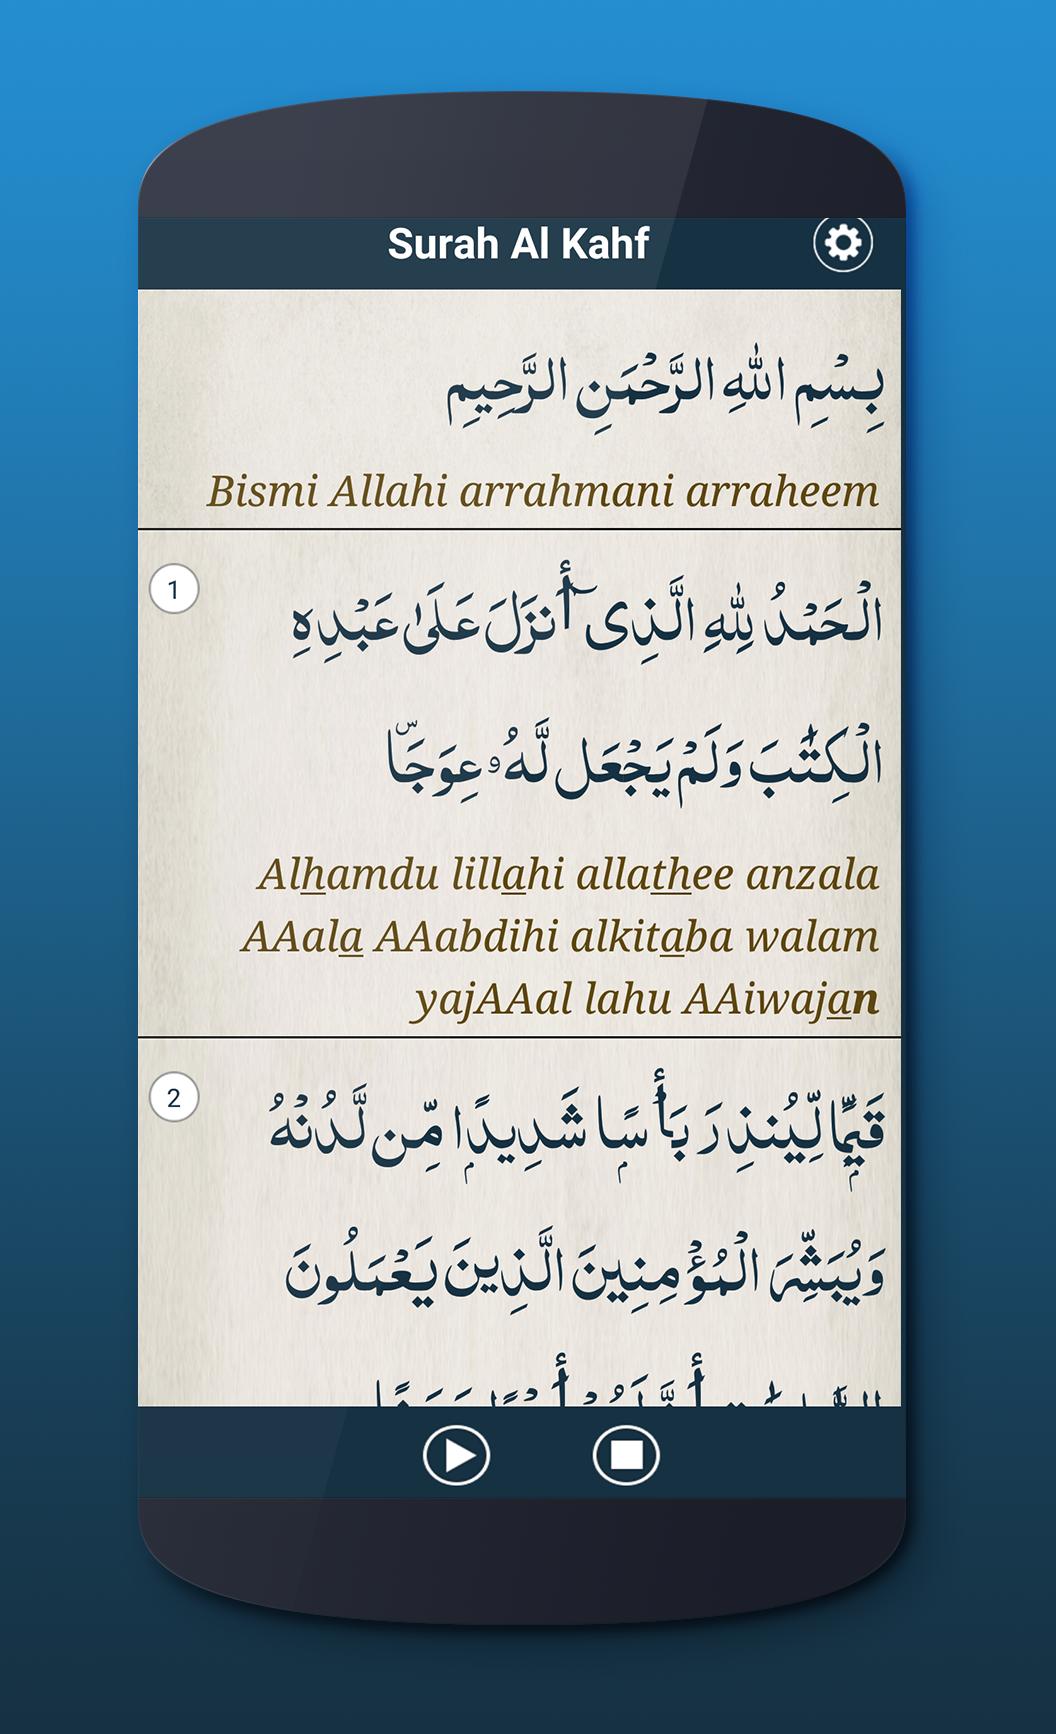 Surah Al Kahf
بِسْمِ اللهِ الرَّحْمَنِ الرَّحِيمِ
Bismi Allahi arrahmani arraheem
1
الْحَمْدُ لِلَّهِ الَّذِىٓ أَنزَلَ عَلَىٰ عَبْدِهِ
الْكِتَٰبَ وَلَمْ يَجْعَل لَّهُۥ عِوَجَاۜ
Alhamdu lillahi allathee anzala
AAala AAabdihi alkitaba walam
yajAAal lahu AAiwajan
2
قَيِّمًۭا لِّيُنذِرَ بَأْسًۭا شَدِيدًۭا مِّن لَّدُنْهُ
وَيُبَشِّرَ الْمُؤْمِنِينَ الَّذِينَ يَعْمَلُونَ